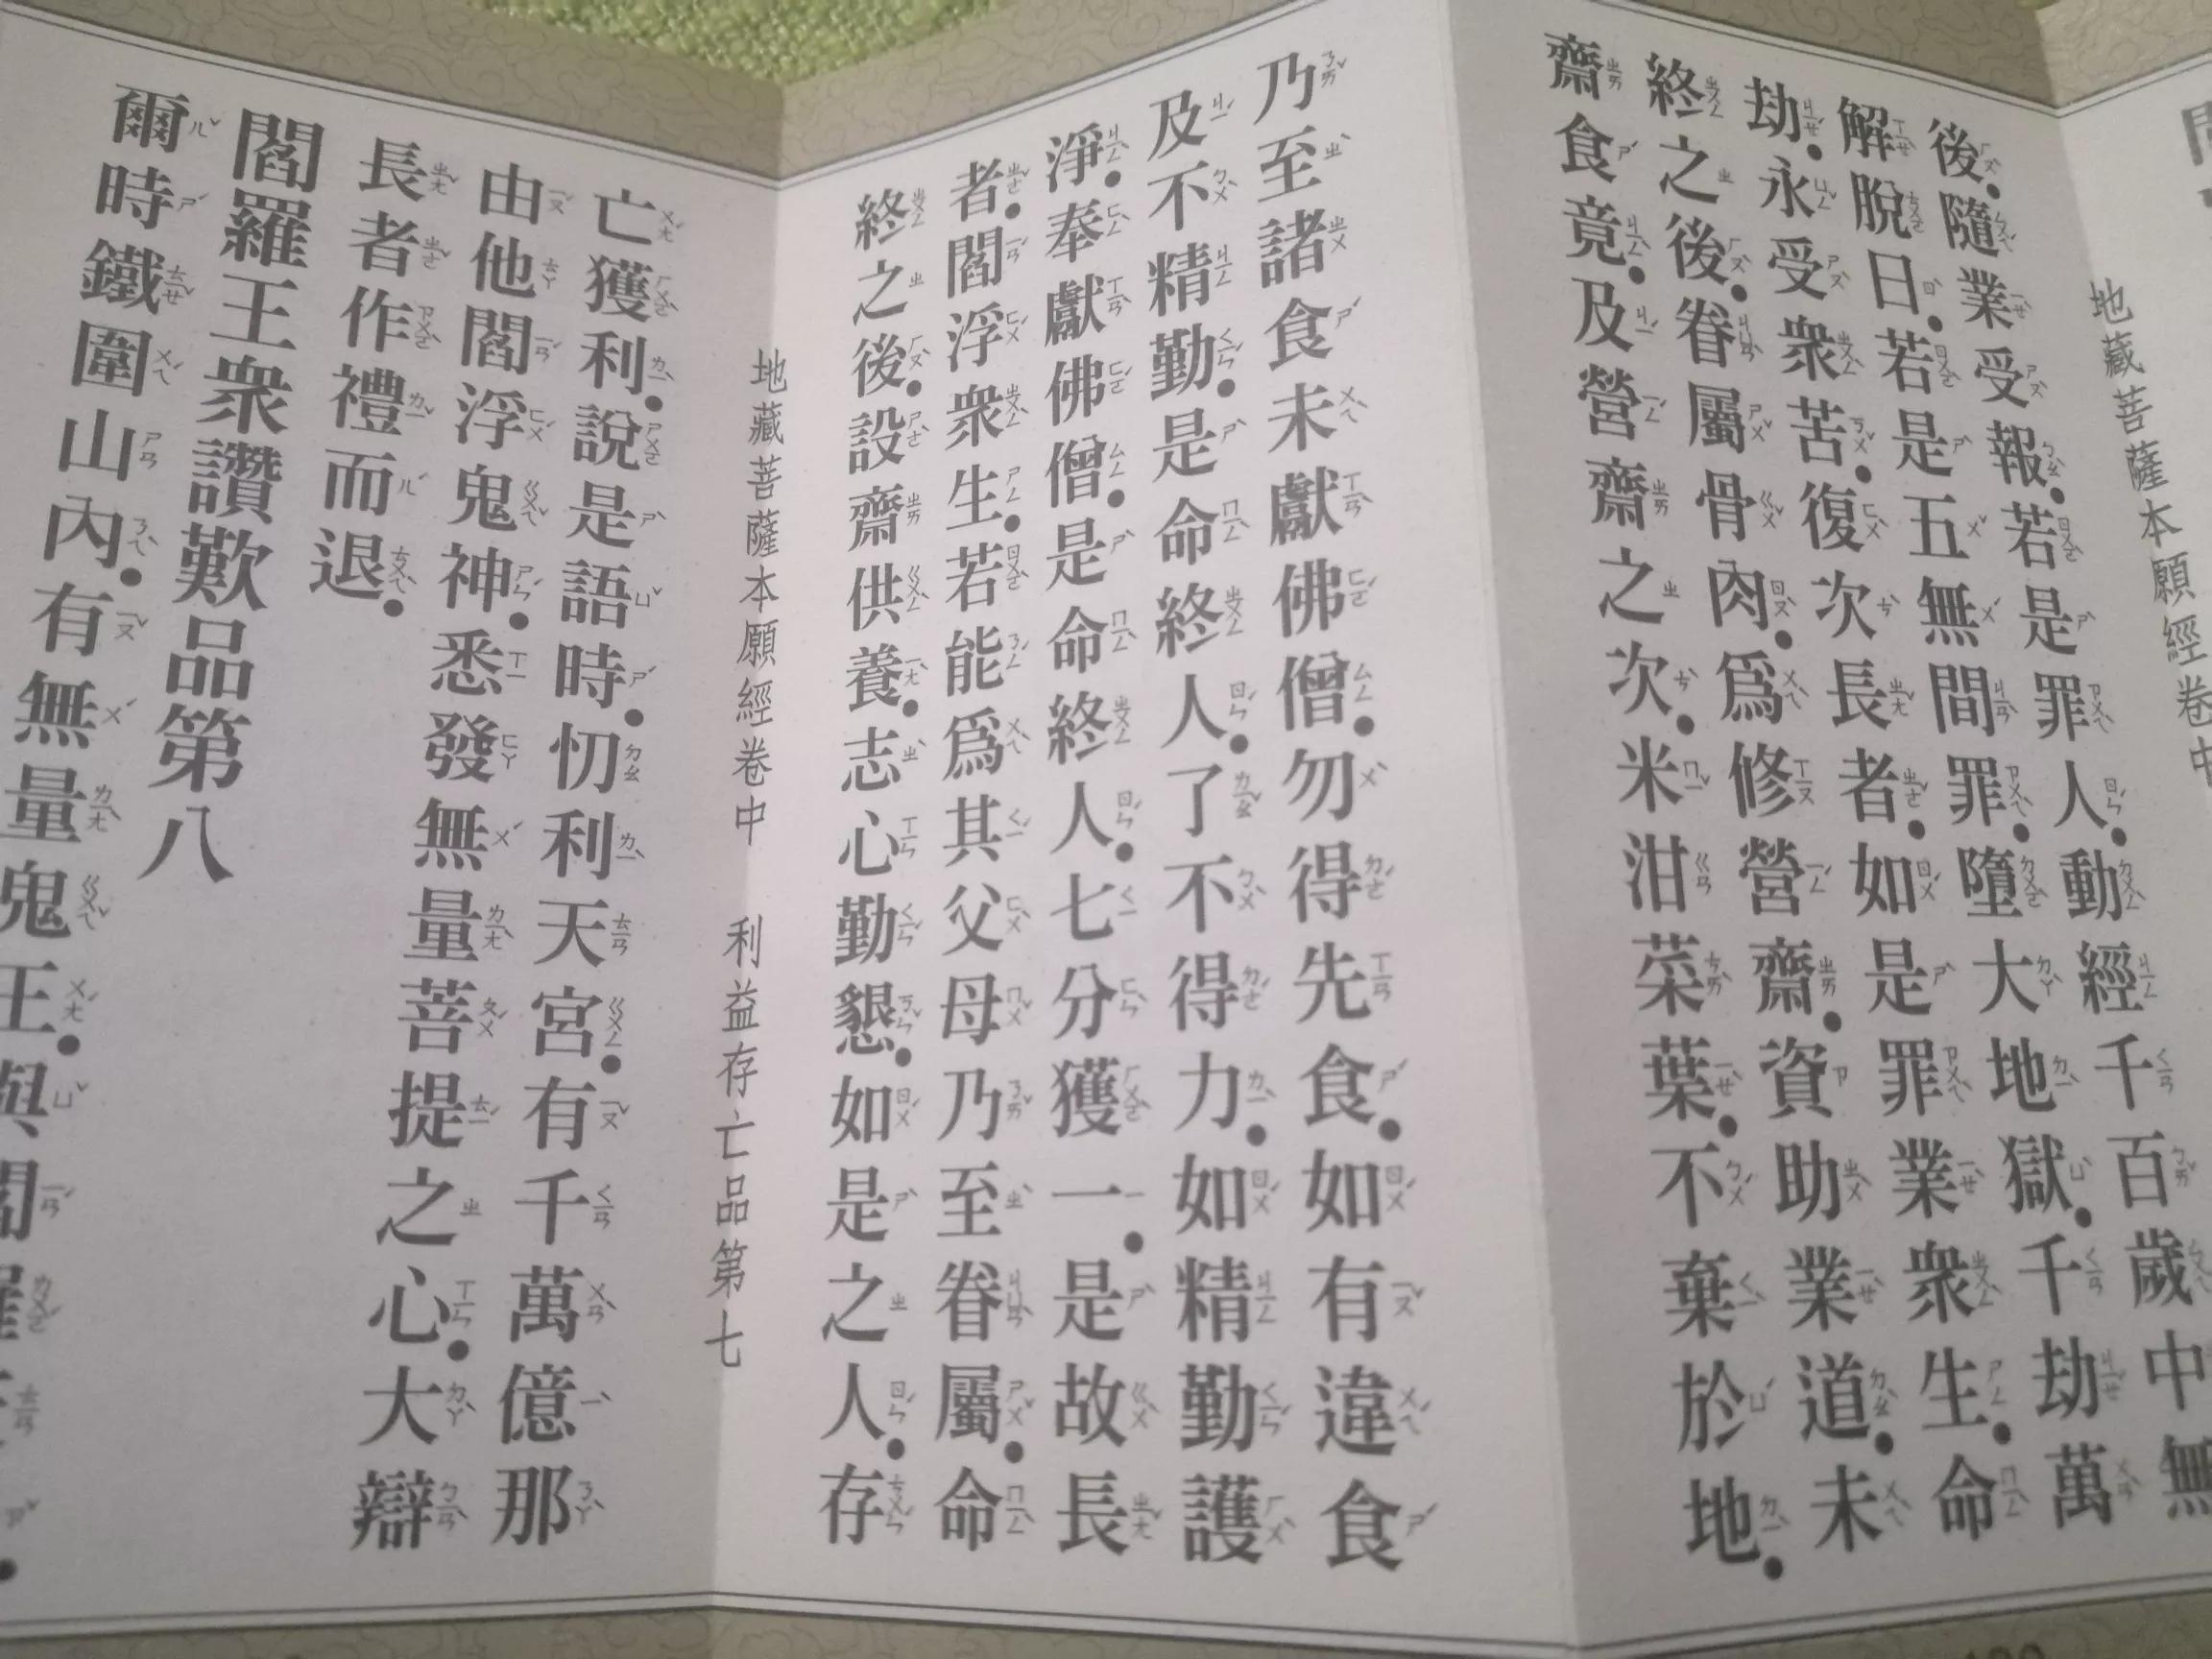 地藏菩薩本願經卷中
後。隨業受報。若是罪人。動經千百歲中無
解脫日。若是五無間罪。墮大地獄。千劫萬
劫。永受衆苦。復次長者。如是罪業衆生。命
終之後。眷屬骨肉。爲修營齋。資助業道。未
齋食竟。及營齋之次。米泔菜葉。不棄於地。
乃至諸食未獻佛僧。勿得先食。如有違食
及不精勤。是命終人。了不得力。如精勤護
淨。奉獻佛僧。是命終人。七分獲一。是故長
者。閻浮衆生。若能爲其父母乃至眷屬。命
終之後。設齋供養。志心勤懇。如是之人。存
地藏菩薩本願經卷中 利益存亡品第七
亡獲利。說是語時。忉利天宮。有千萬億那
由他閻浮鬼神。悉發無量菩提之心。大辯
長者作禮而退。
閻羅王衆讚歎品第八
爾時鐵圍山內。有無量鬼王。與閻羅天